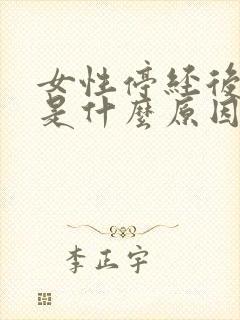 女性停経後
是什麼原因
李正宇